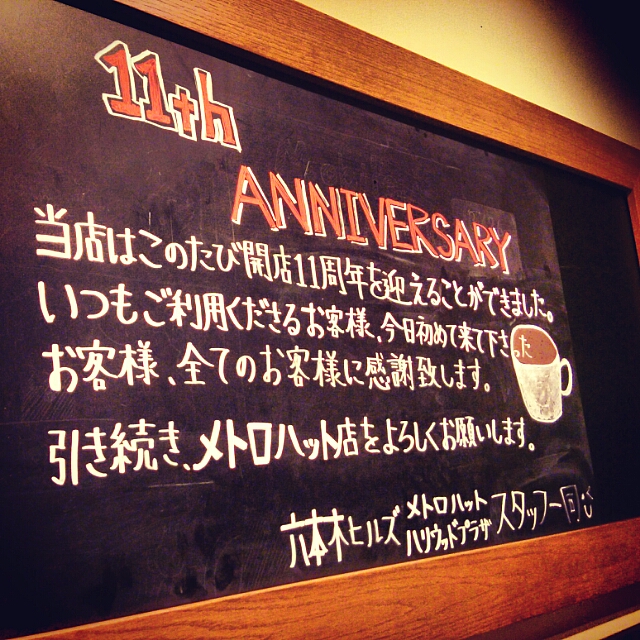 11th
ANNIVERSARY
当店はこのたび開店11周年を迎えることができました。
いつもご利用くださるお客様、今日初めて来て下さった
お客様、全てのお客様に感謝致します。
引き続き、メトロハット店をよろしくお願いします。
六本木ヒルズ メトロハット ハリウッドプラザ スタッフ一同